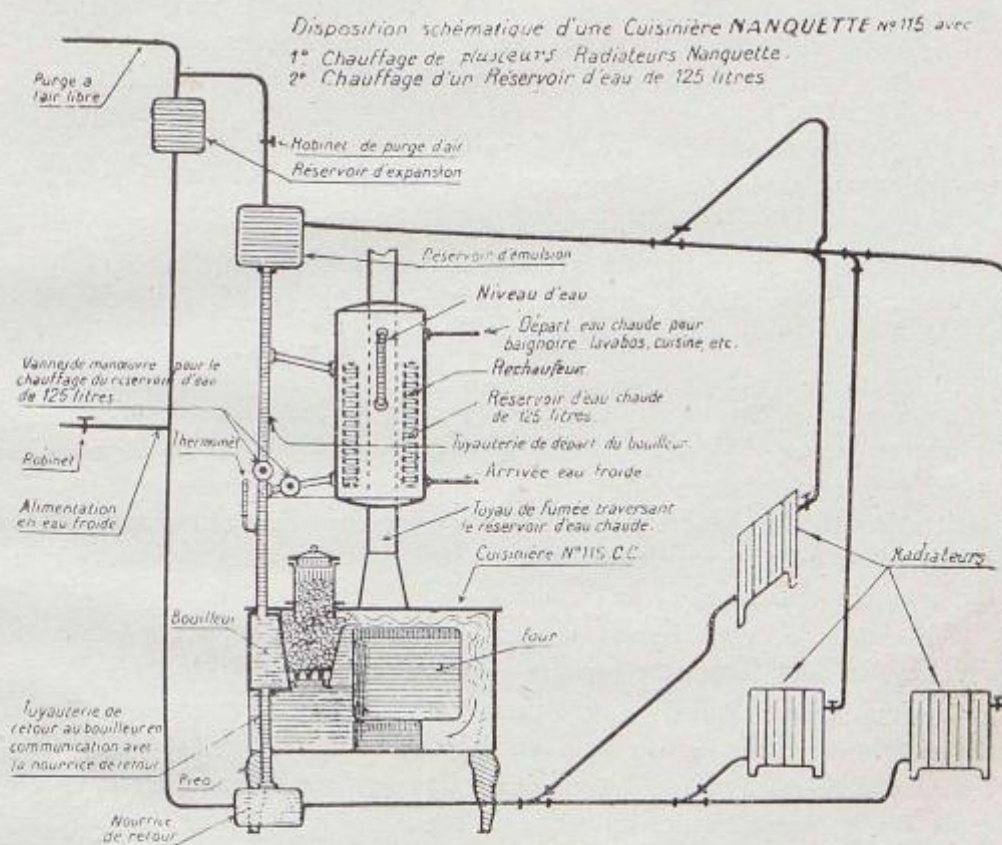 Disposition schématique d'une Cuisinière NANQUETTE N° 115 avec
1° Chauffage de plusieurs Radiateurs Nanquette.
2° Chauffage d'un Réservoir d'eau de 125 litres
Purge à
l'air libre
Robinet de purge d'air
Réservoir d'expansion
Réservoir d'émulsion
Niveau d'eau
Départ eau chaude pour
baignoire lavabos, cuisine, etc.
Vannes de manœuvre pour le
chauffage du réservoir d'eau
de 125 litres
Rechauffeur
Réservoir d'eau chaude
de 125 litres.
Thermimèt
Tuyauterie de départ du bouilleur
Robinet
Arrivée eau froide
Alimentation
en eau froide
Tuyau de fumée traversant
le réservoir d'eau chaude.
Cuisinière N° 115 C.C.
Radiateurs
Bouilleur
Four
Tuyauterie de
retour au bouilleur en
communication avec
la nourrice de retour
Pied
Nourrice
de retour